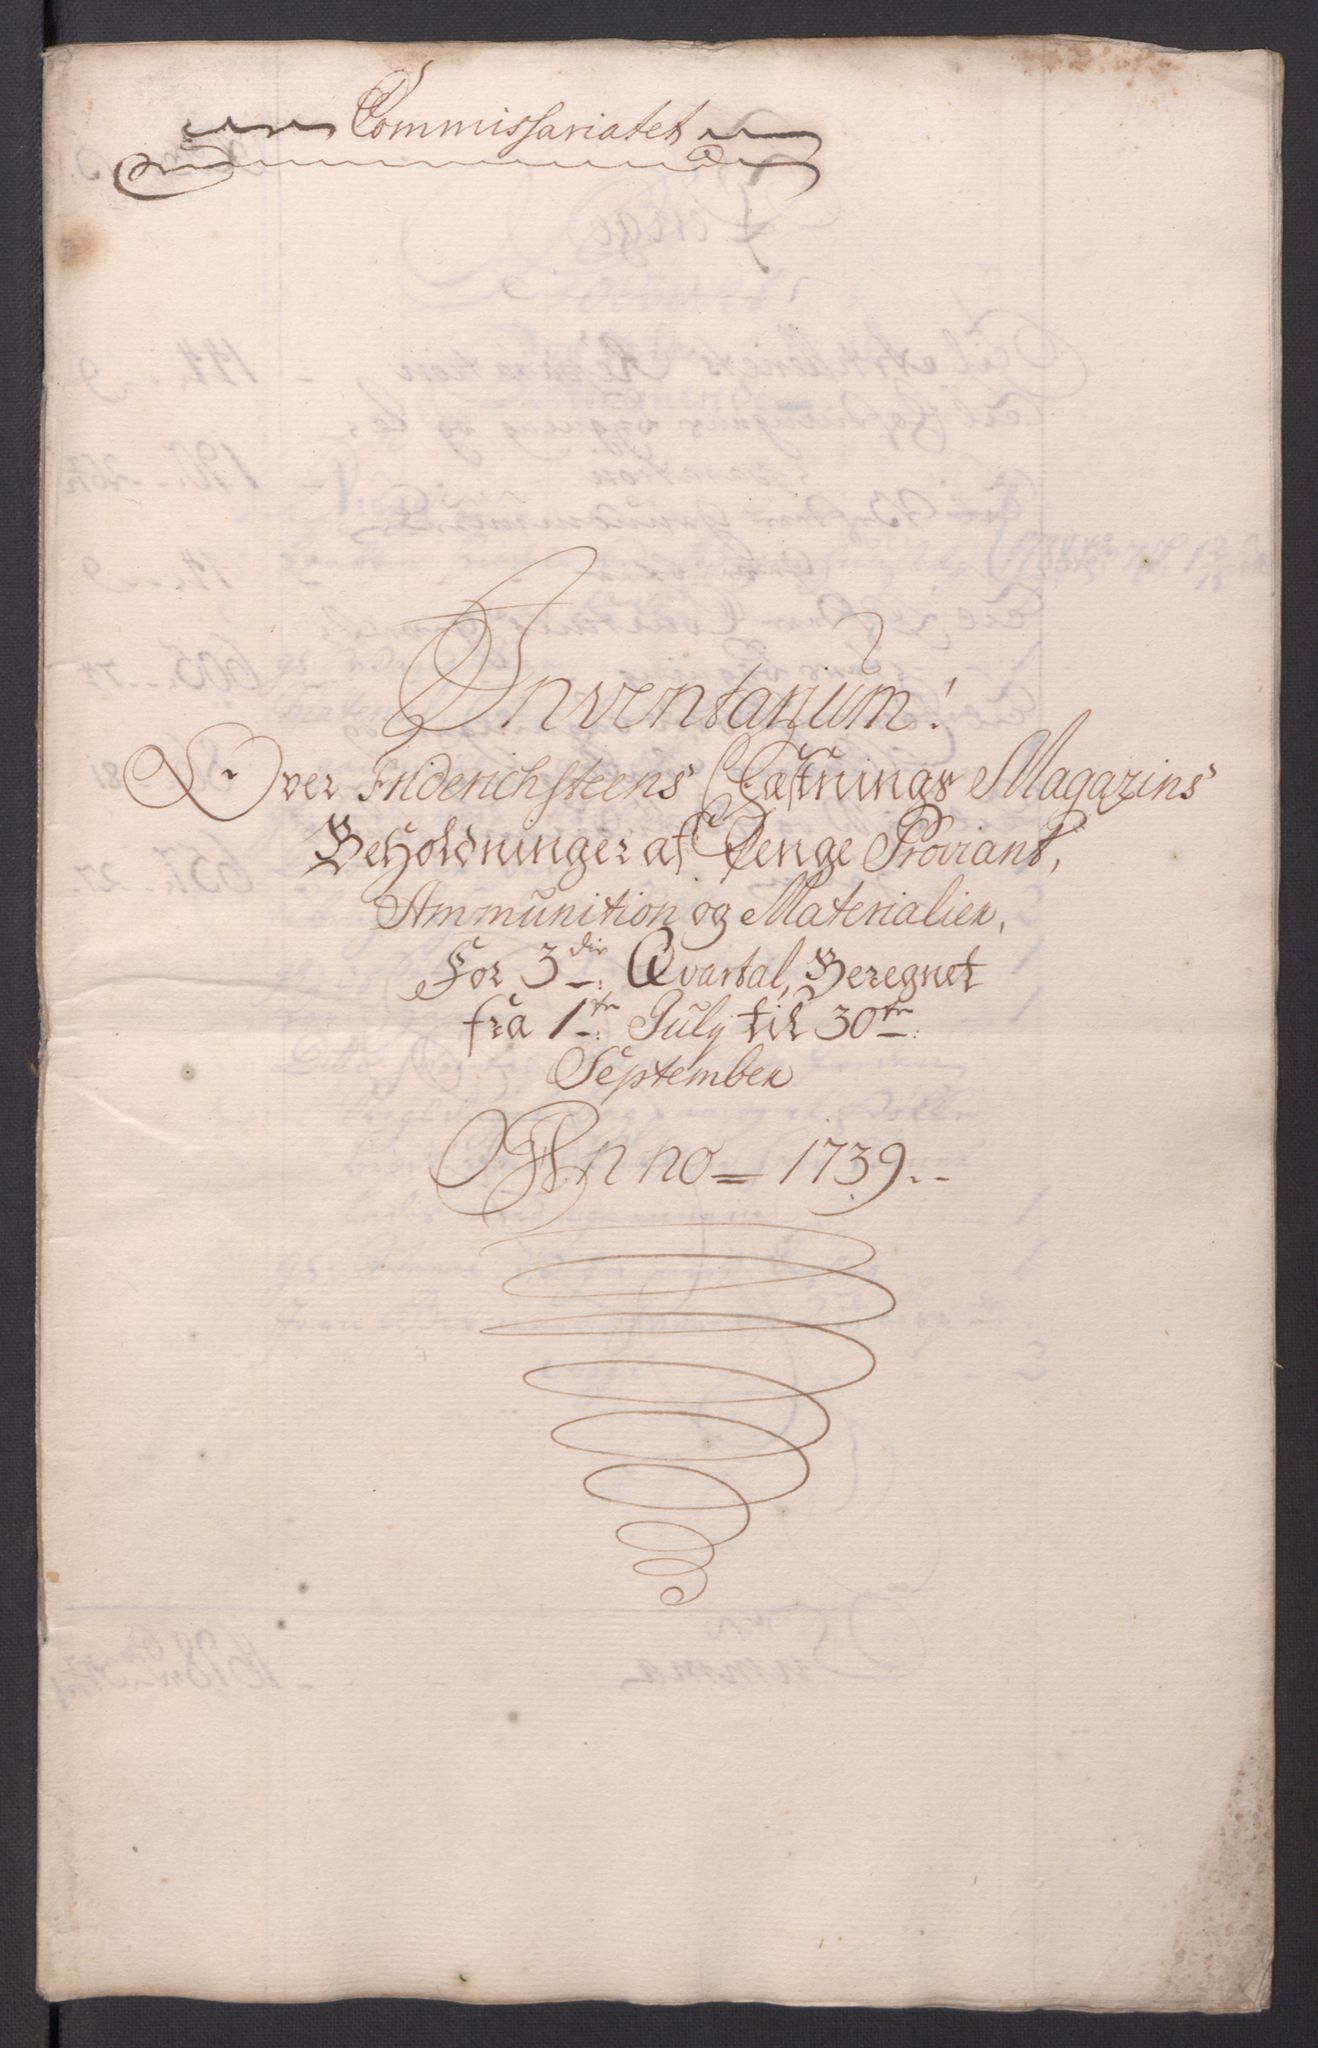 Commissariatet
Inventarium!
Over Friderichsteens Fæstnings Magazins
Beholdninger af Penge Proviant,
Ammunition og Materialier,
For 3die: Qvartal, Beregnet
fra 1te: July til 30te:
September
Anno = 1739..